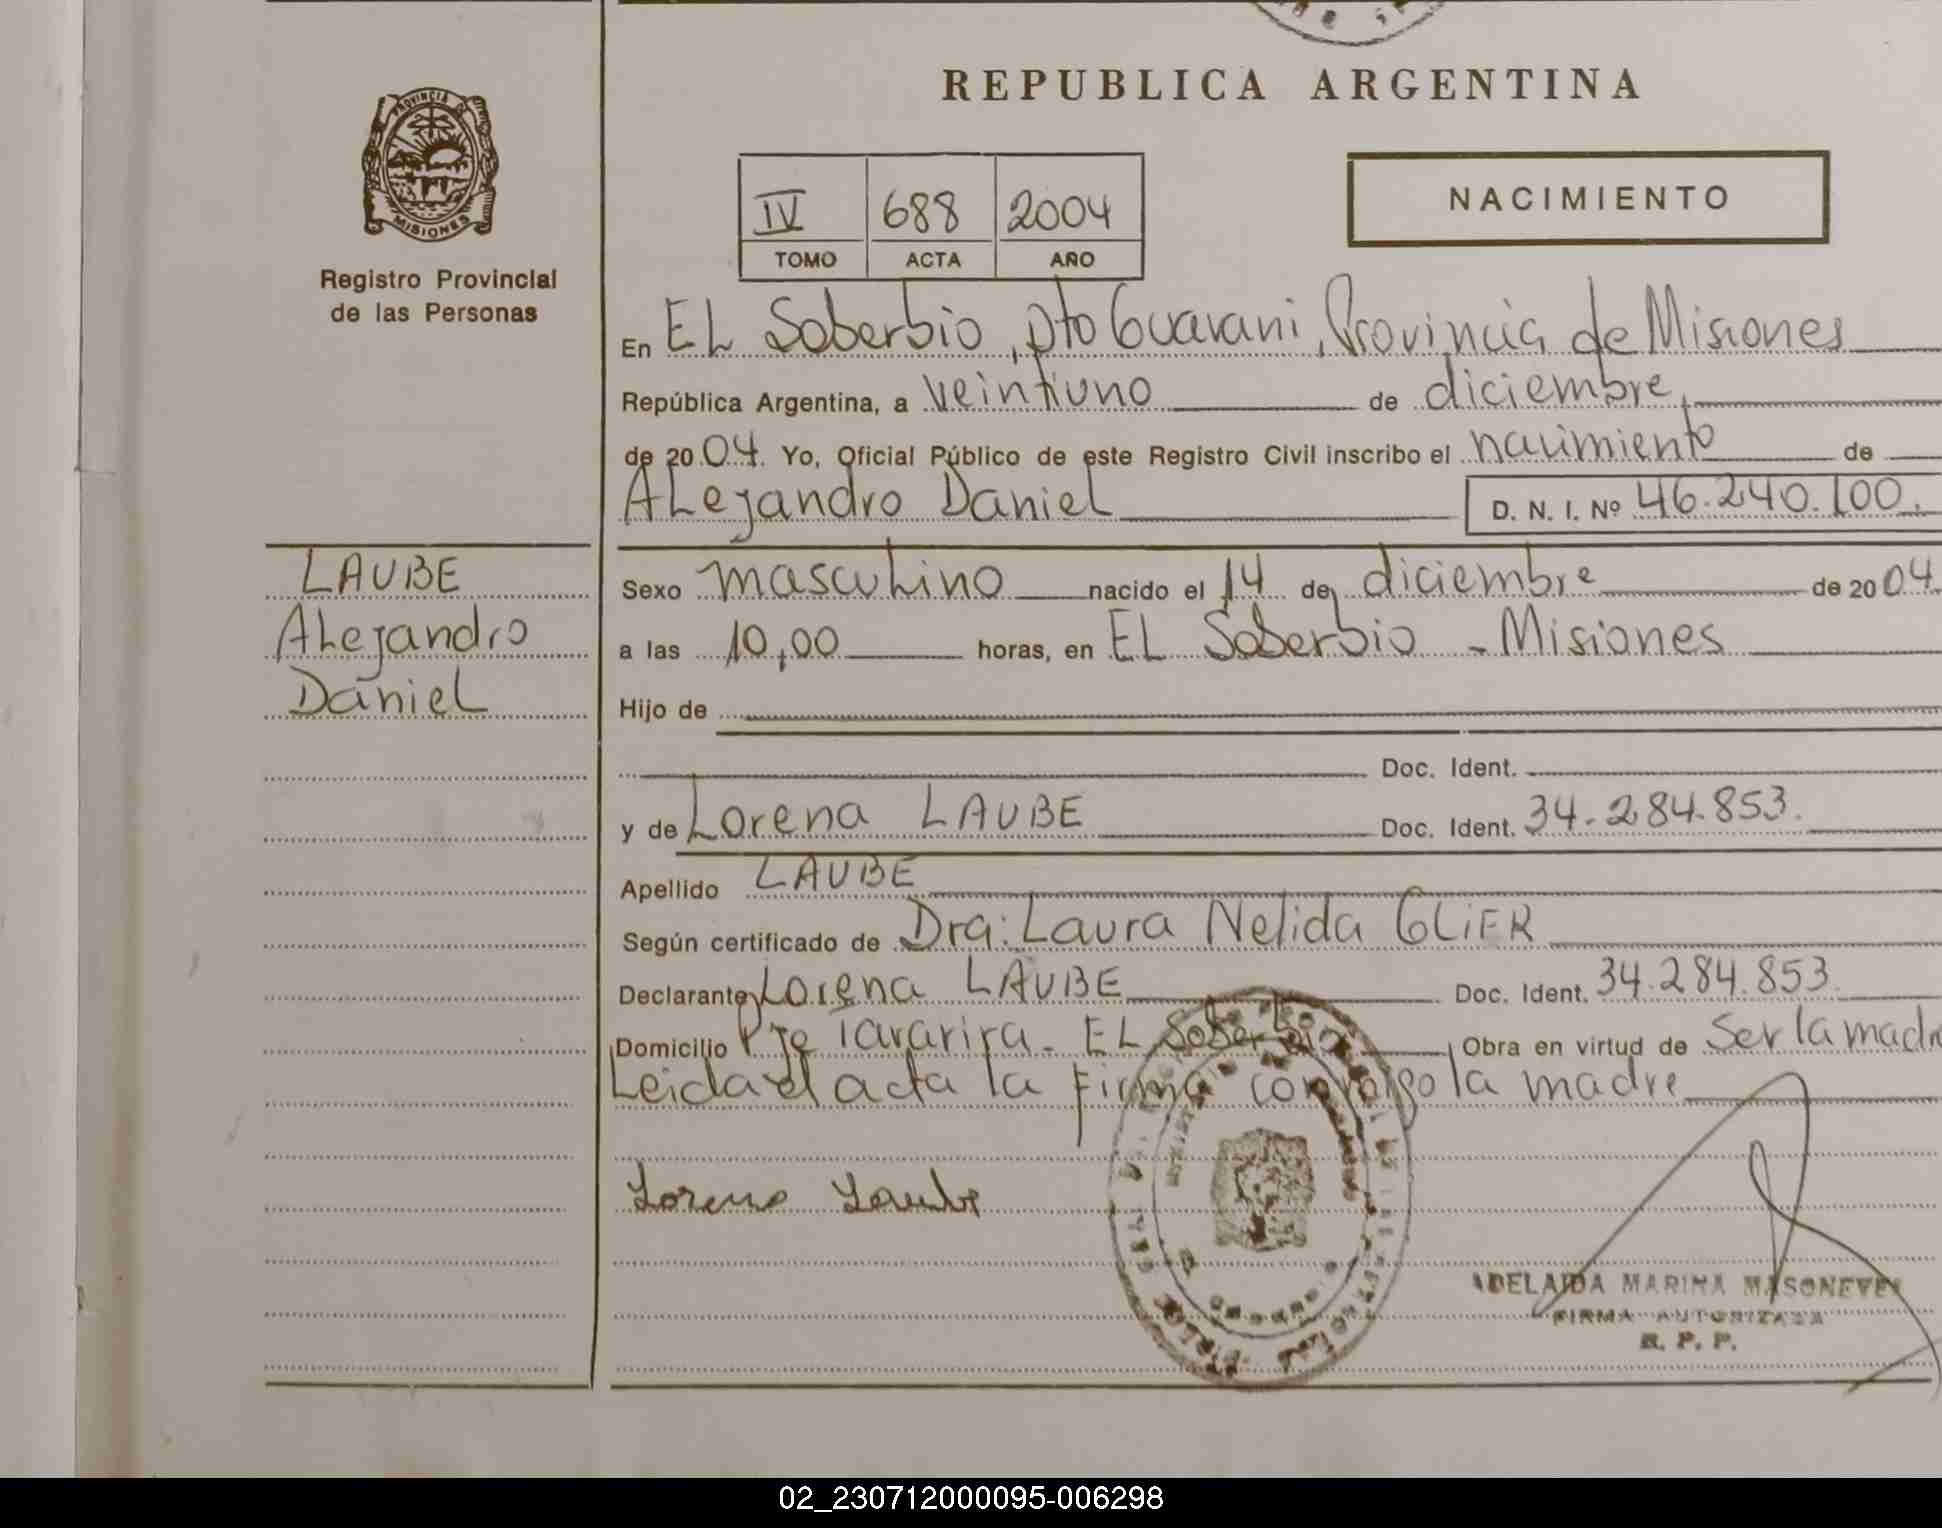 REPUBLICA ARGENTINA
PROVINCIA DE MISIONES
Registro Provincial
de las Personas
IV 688 2004
TOMO ACTA AÑO
NACIMIENTO
En EL Soberbio, Dto Guarani, Provincia de Misiones
República Argentina, a veintiuno de diciembre,
de 2004. Yo, Oficial Público de este Registro Civil inscribo el nacimiento de
ALejandro Daniel D. N. I. Nº 46.240.100.
LAUBE
ALejandro
Daniel
Sexo mascuLino nacido el 14 de diciembre de 2004.
a las 10,00 horas, en EL Soberbio - Misiones
Hijo de
Doc. Ident.
y de Lorena LAUBE Doc. Ident. 34.284.853.
Apellido LAUBE
Según certificado de Dra: Laura Nelida GLIER
Declarante Lorena LAUBE Doc. Ident. 34.284.853
Domicilio Pje Tararira - EL Soberbio Obra en virtud de Ser la madr
Leida el acta la firma conmigo la madre
Lorena Laube
ADELAIDA MARINA
FIRMA AUTORIZADA
R. P. P.
02_230712000095-006298